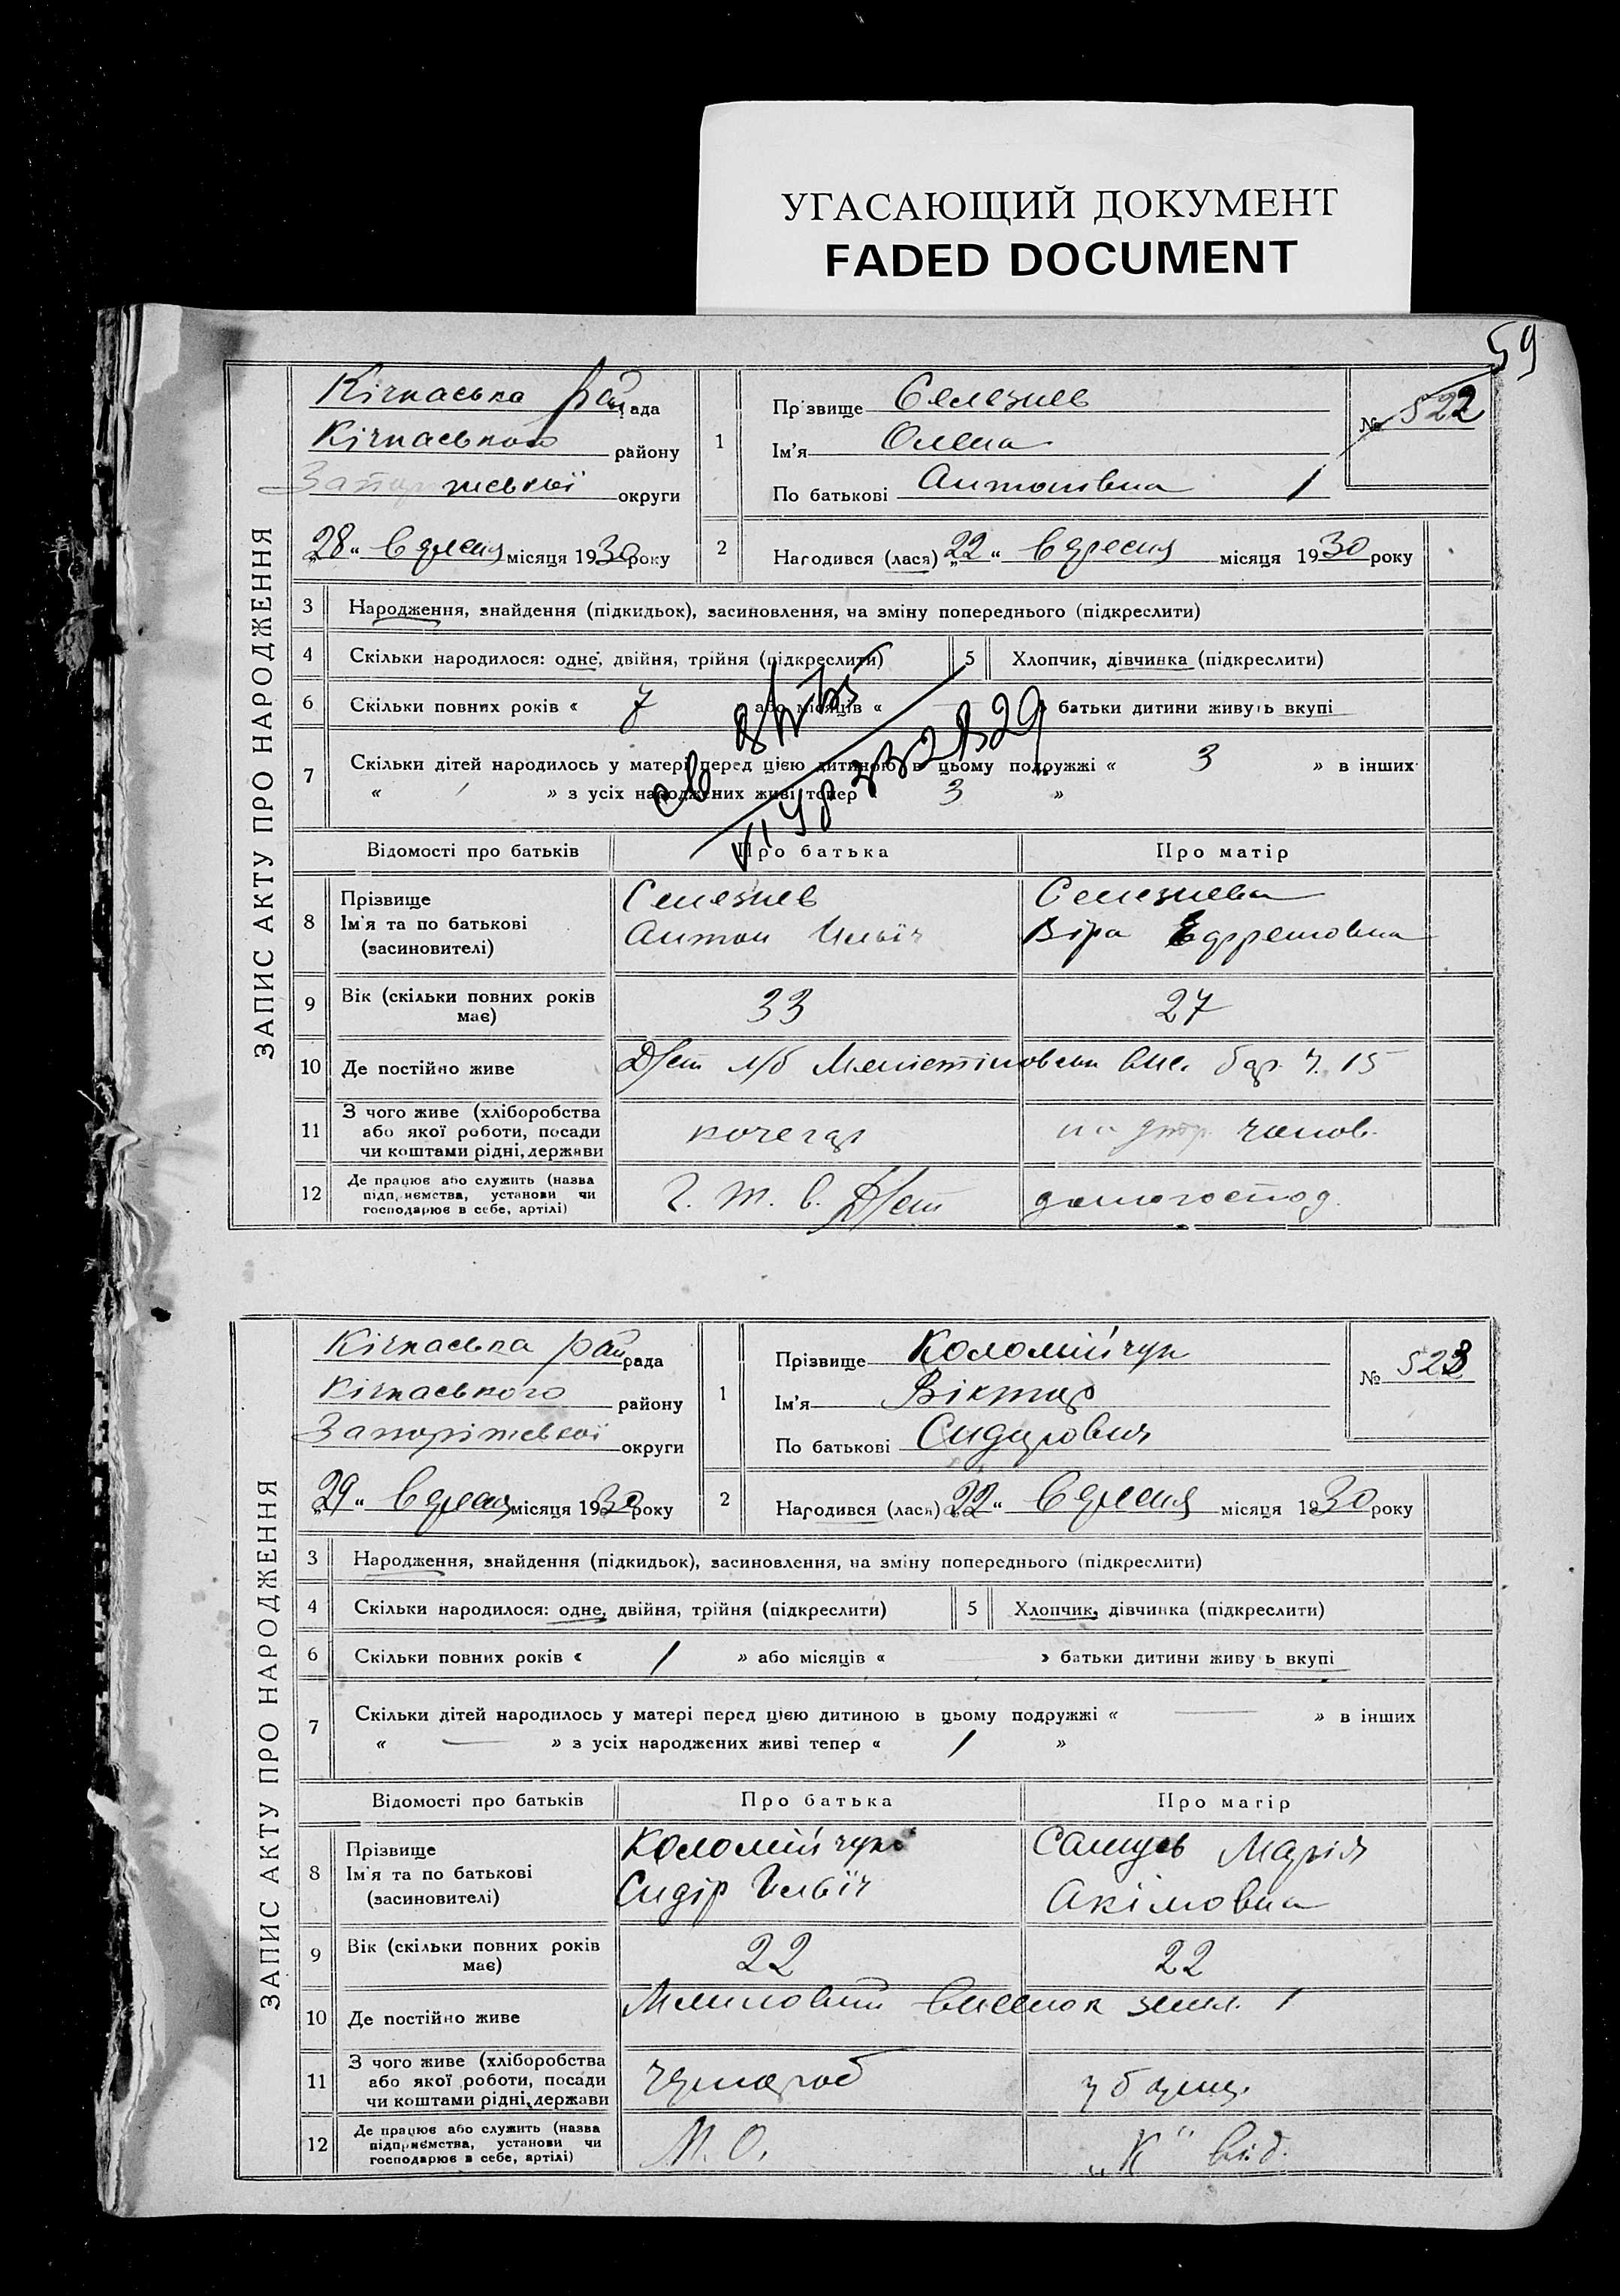 УГАСАЮЩИЙ ДОКУМЕНТ
FADED DOCUMENT
59
ЗАПИС АКТУ ПРО НАРОДЖЕННЯ
Кічкаська рай рада
Кічкаського району
Запоріжської округи
„28" вересня місяця 1930 року
1
Прізвище Селезнев
Ім'я Олена
По батькові Антонівна
№ 522
2 Народився (лася) „22" вересня місяця 1930 року
3 Народження, знайдення (підкидьок), засиновлення, на зміну попереднього (підкреслити)
4 Скільки народилося: одне, двійня, трійня (підкреслити)
5 Хлопчик, дівчинка (підкреслити)
6 Скільки повних років « 7 » або місяців « — » батьки дитини живуть вкупі
7 Скільки дітей народилось у матері перед цією дитиною в цьому подружжі « 3 » в інших
« » з усіх народжених живі тепер « 3 »
Відомості про батьків Про батька Про матір
8 Прізвище Ім'я та по батькові (засиновителі)
Селезнев Антон Ильїч
Селезнева Віра Ефремовна
9 Вік (скільки повних років має) 33 27
10 Де постійно живе
вис. бар. ч. 15
11 З чого живе (хліборобства або якої роботи, посади чи коштами рідні, держави
кочегар
на утр. чолов.
12 Де працює або служить (назва підприємства, установи чи господарює в себе, артілі)
домогоспод.
ЗАПИС АКТУ ПРО НАРОДЖЕННЯ
Кічкаська рай рада
Кічкаського району
Запоріжської округи
„29" вересня місяця 1930 року
1
Прізвище Коломійчук
Ім'я Віктор
По батькові Сидорович
№ 523
2 Народився (лася) „22" вересня місяця 1930 року
3 Народження, знайдення (підкидьок), засиновлення, на зміну попереднього (підкреслити)
4 Скільки народилося: одне, двійня, трійня (підкреслити)
5 Хлопчик, дівчинка (підкреслити)
6 Скільки повних років « 1 » або місяців « — » батьки дитини живуть вкупі
7 Скільки дітей народилось у матері перед цією дитиною в цьому подружжі « — » в інших
« — » з усіх народжених живі тепер « 1 »
Відомості про батьків Про батька Про матір
8 Прізвище Ім'я та по батькові (засиновителі)
Коломійчук Сидір Ильїч
Самусь Марія Акімовна
9 Вік (скільки повних років має) 22 22
10 Де постійно живе
виселок земл. 1
11 З чого живе (хліборобства або якої роботи, посади чи коштами рідні, держави
чорнороб
12 Де працює або служить (назва підприємства, установи чи господарює в себе, артілі)
М. О.
„К" від.